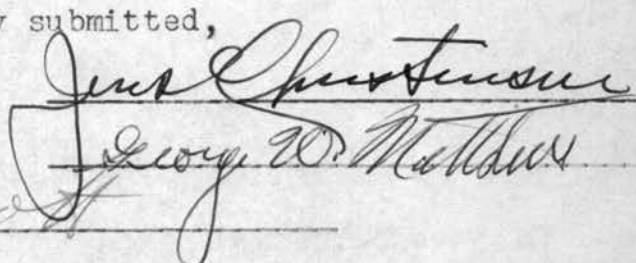 submitted,
Jens Christensen
George W. Matthews